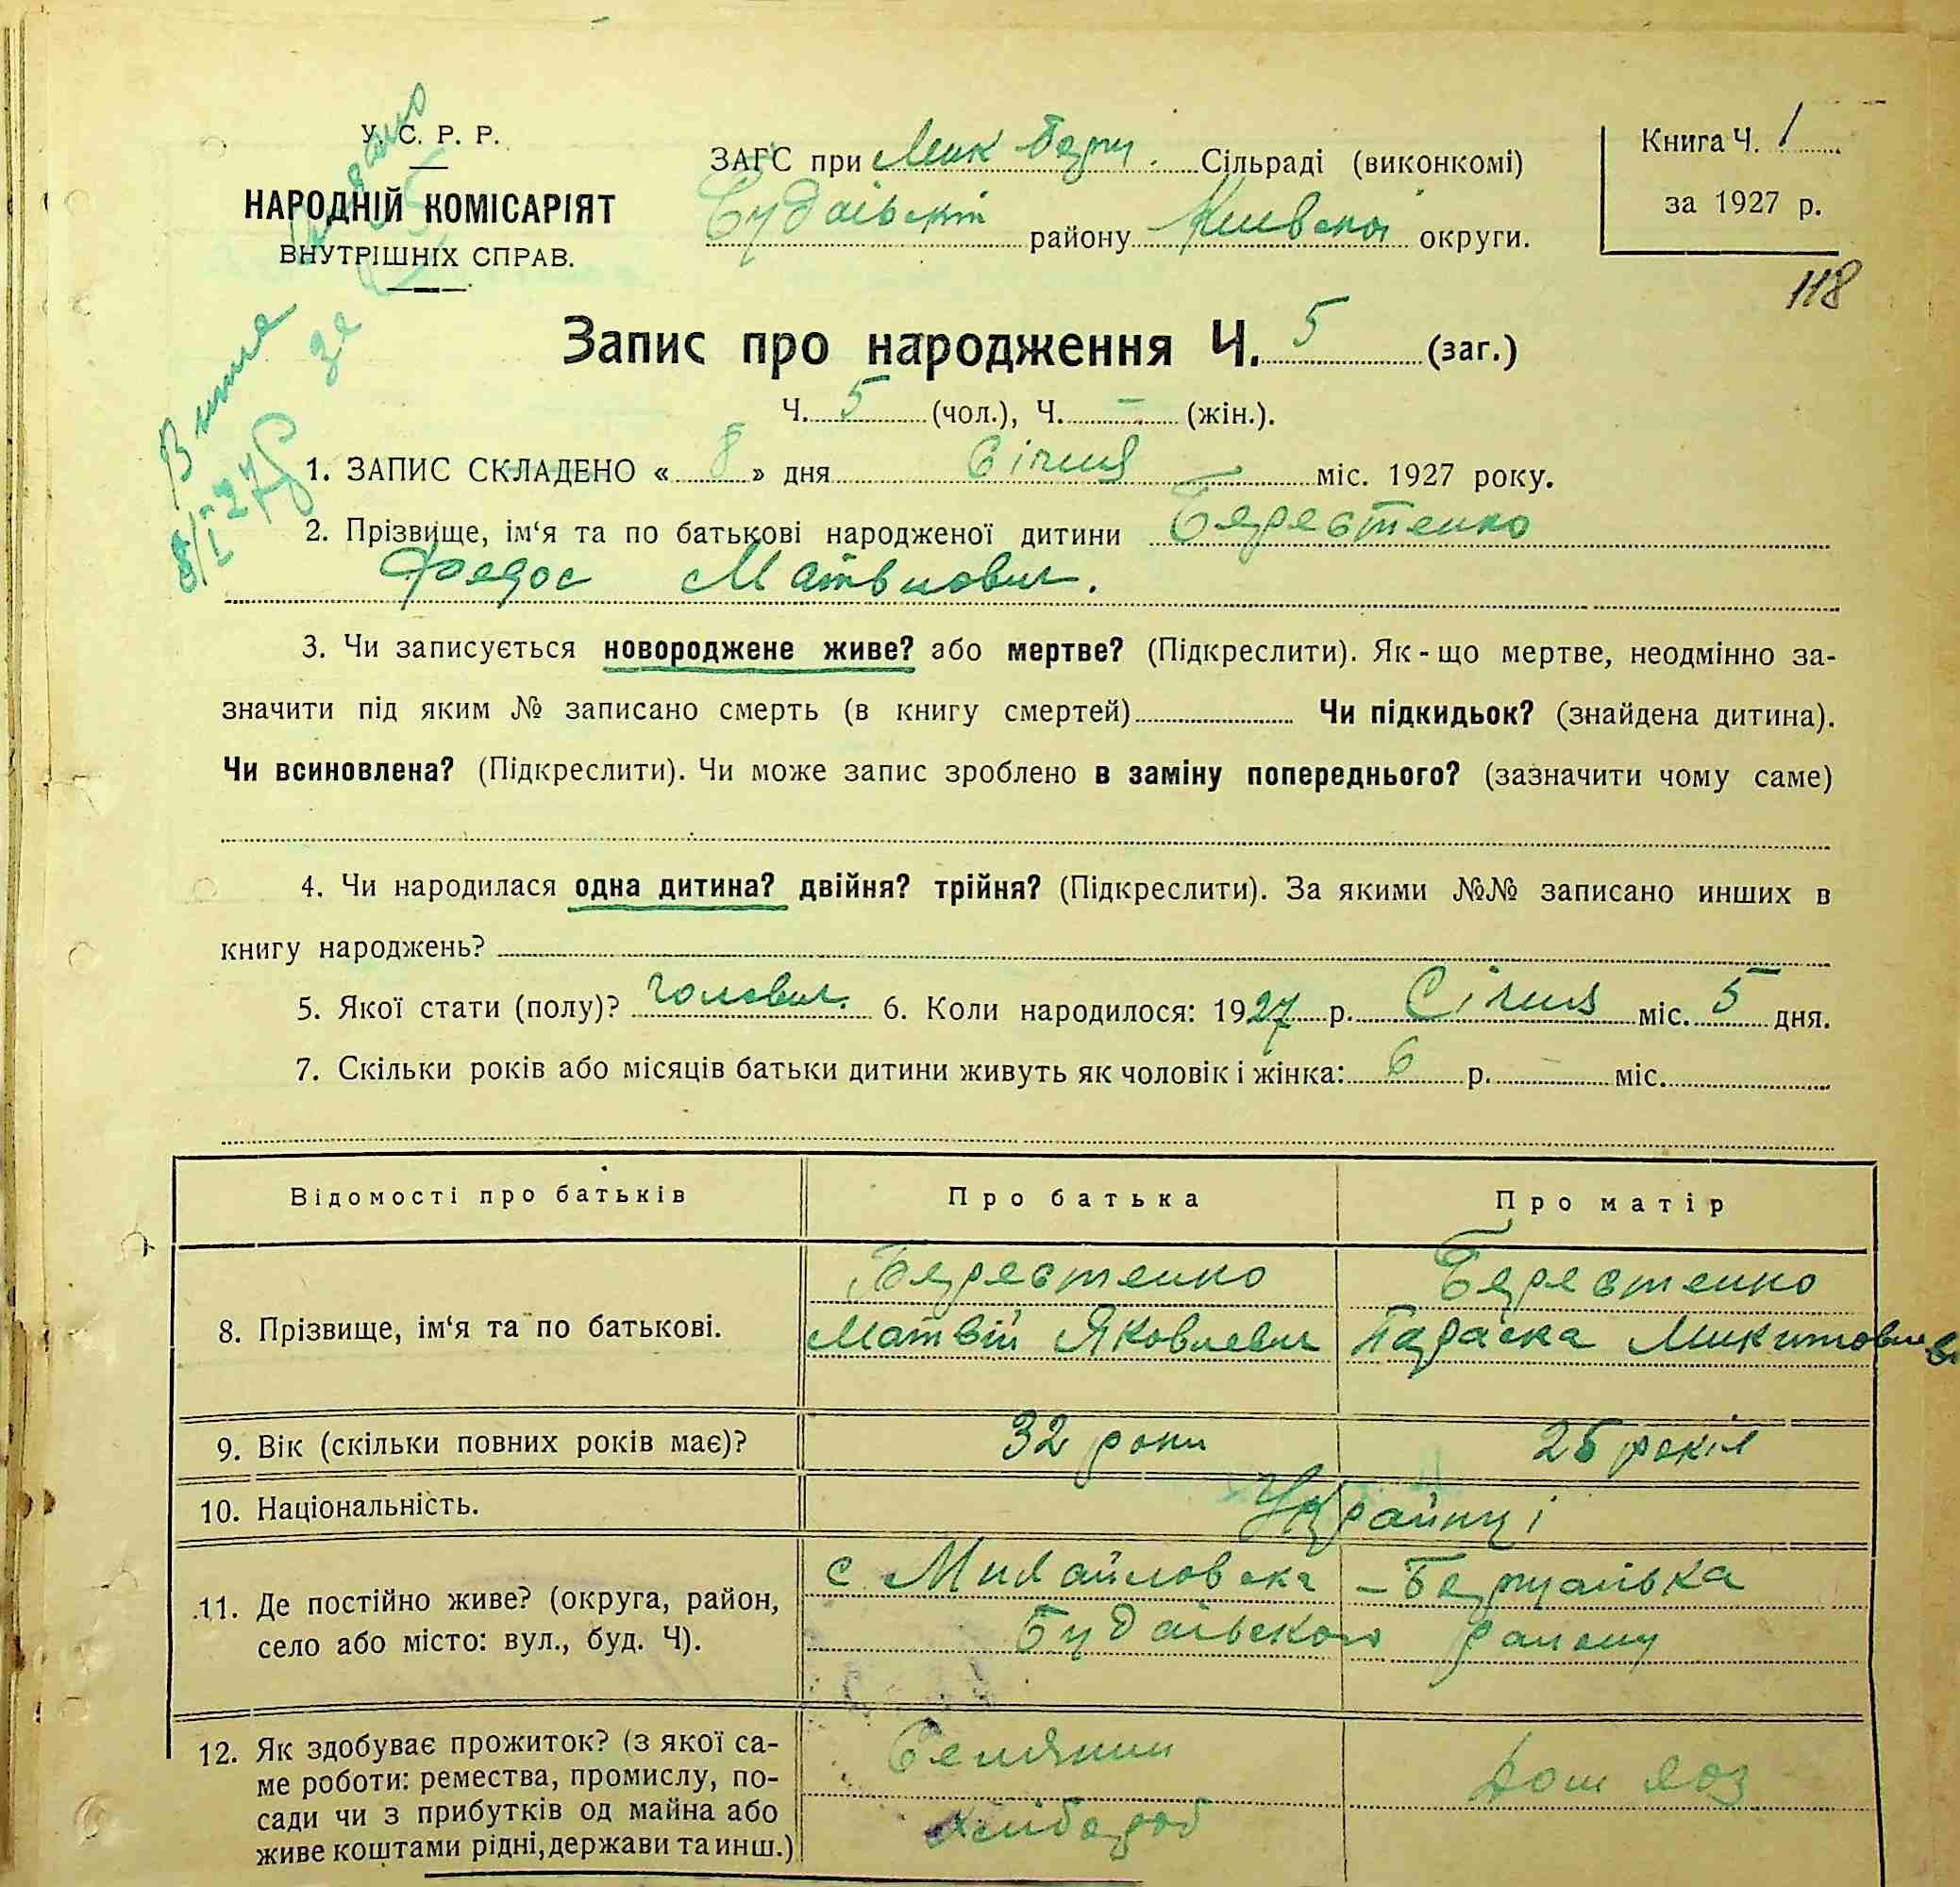 У. С. Р. Р.
НАРОДНІЙ КОМІСАРІЯТ
ВНУТРІШНІХ СПРАВ.
ЗАГС при Мик Берц. Сільраді (виконкомі)
Будаівскім району Київскоі округи.
Книга Ч. 1
за 1927 р.
118
Запис про народження Ч. 5 (заг.)
Ч. 5 (чол.), Ч. – (жін.).
8/I 27
1. ЗАПИС СКЛАДЕНО « 8 » дня Січня міс. 1927 року.
2. Прізвище, ім‘я та по батькові народженої дитини Берестенко
Федос Матвиович.
3. Чи записується новороджене живе? або мертве? (Підкреслити). Як-що мертве, неодмінно за-
значити під яким № записано смерть (в книгу смертей) Чи підкидьок? (знайдена дитина).
Чи всиновлена? (Підкреслити). Чи може запис зроблено в заміну попереднього? (зазначити чому саме)
4. Чи народилася одна дитина? двійня? трійня? (Підкреслити). За якими №№ записано инших в
книгу народжень?
5. Якої стати (полу)? чолович. 6. Коли народилося: 1927 р. Січня міс. 5 дня.
7. Скільки років або місяців батьки дитини живуть як чоловік і жінка: 6 р. – міс.
Відомості про батьків Про батька Про матір
8. Прізвище, ім‘я та по батькові.
Берестенко Берестенко
Матвій Яковлевич Параска Микитовна
9. Вік (скільки повних років має)? 32 роки 25 років
10. Національність. Украйнці
11. Де постійно живе? (округа, район,
село або місто: вул., буд. Ч).
с Михайловска – Берцаівка
Будаівского району
12. Як здобуває прожиток? (з якої са-
ме роботи: ремества, промислу, по-
сади чи з прибутків од майна або
живе коштами рідні, держави та инш.)
Селянин Дом хоз
хлібороб